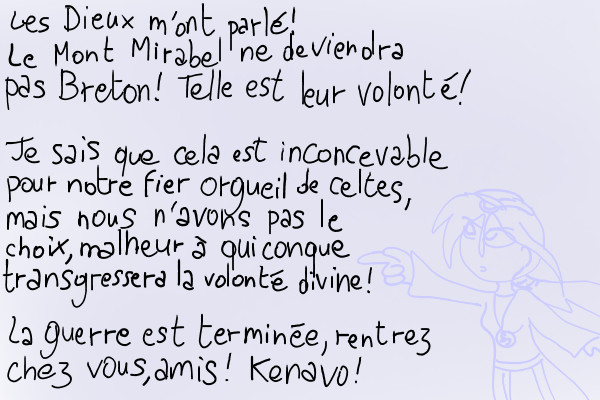 Les Dieux m'ont parlé!
Le Mont Mirabel ne deviendra
pas Breton! Telle est leur volonté!
Je sais que cela est inconcevable
pour notre fier orgueil de celtes,
mais nous n'avons pas le
choix, malheur à quiconque
transgressera la volonté divine!
La guerre est terminée, rentrez
chez vous, amis! Kenavo!